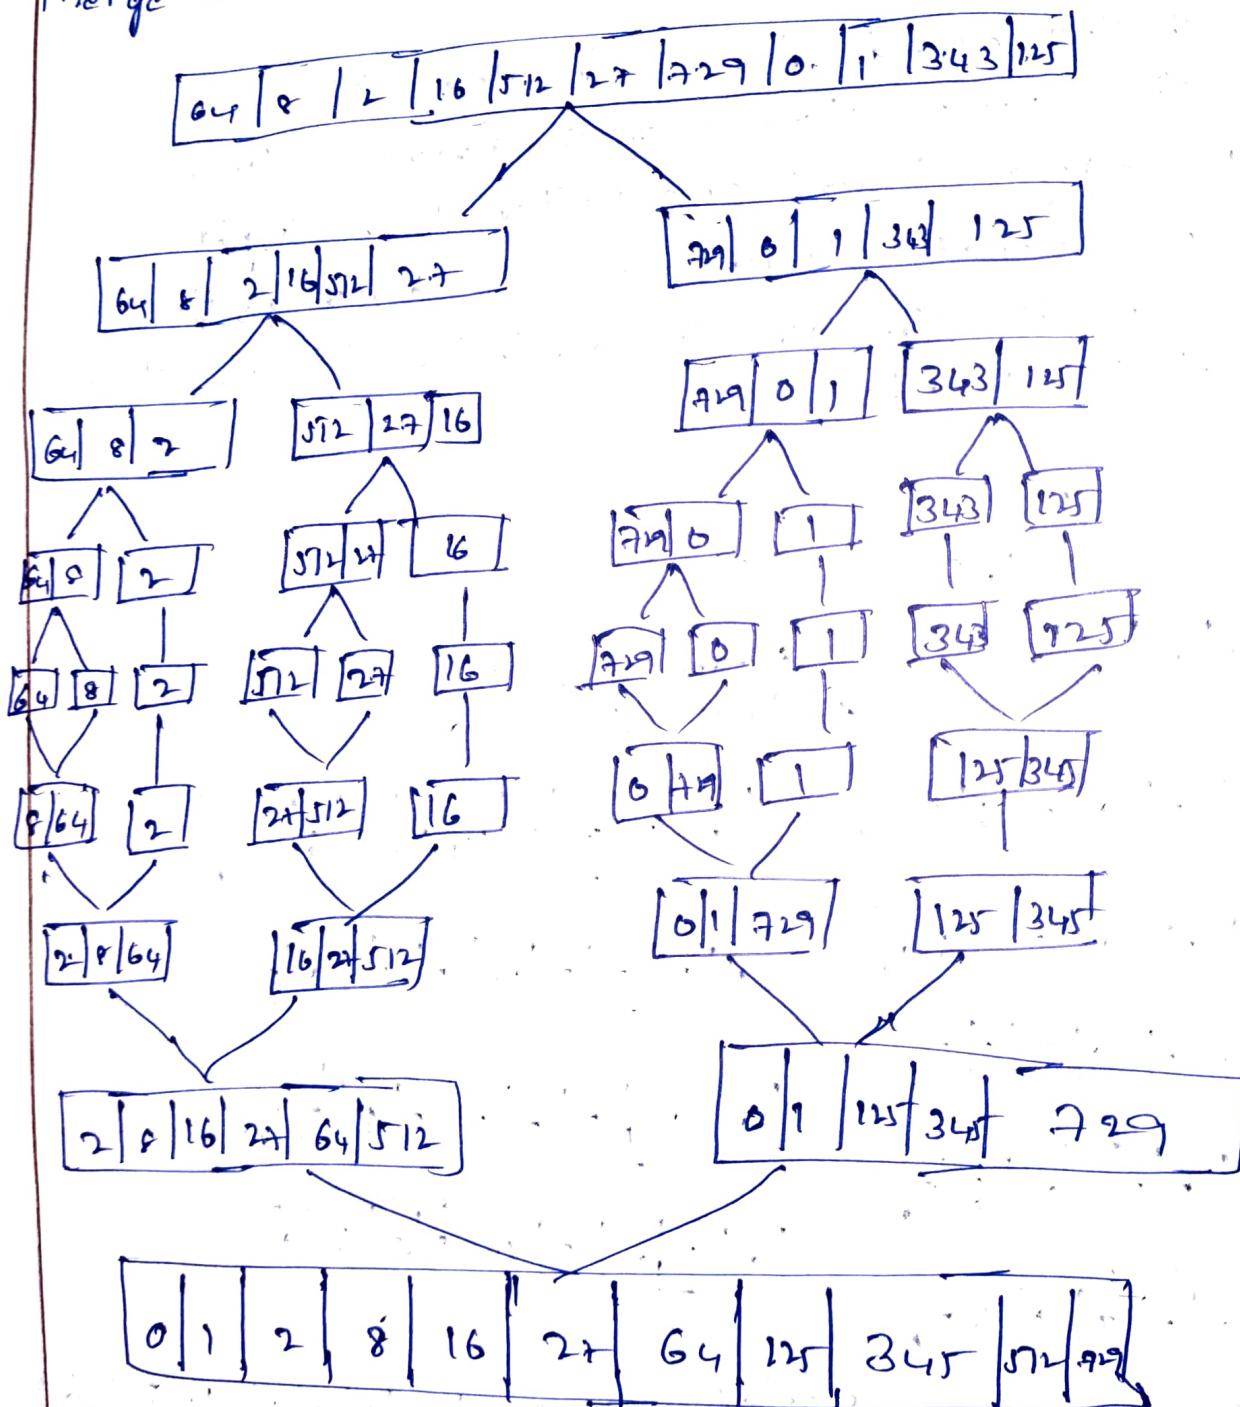 Merge
64 | 8 | 2 | 16 | 512 | 27 | 729 | 0 | 1 | 343 | 125
64 | 8 | 2 | 16 | 512 | 27    729 | 0 | 1 | 343 | 125
64 | 8 | 2    512 | 27 | 16    729 | 0 | 1    343 | 125
64 | 8    2    512 | 27    16    729 | 0    1    343    125
64    8    2    512    27    16    729    0    1    343    125
8 | 64    2    27 | 512    16    0 | 729    1    125 | 345
2 | 8 | 64    16 | 27 | 512    0 | 1 | 729    125 | 345
2 | 8 | 16 | 27 | 64 | 512    0 | 1 | 125 | 345 | 729
0 | 1 | 2 | 8 | 16 | 27 | 64 | 125 | 345 | 512 | 729